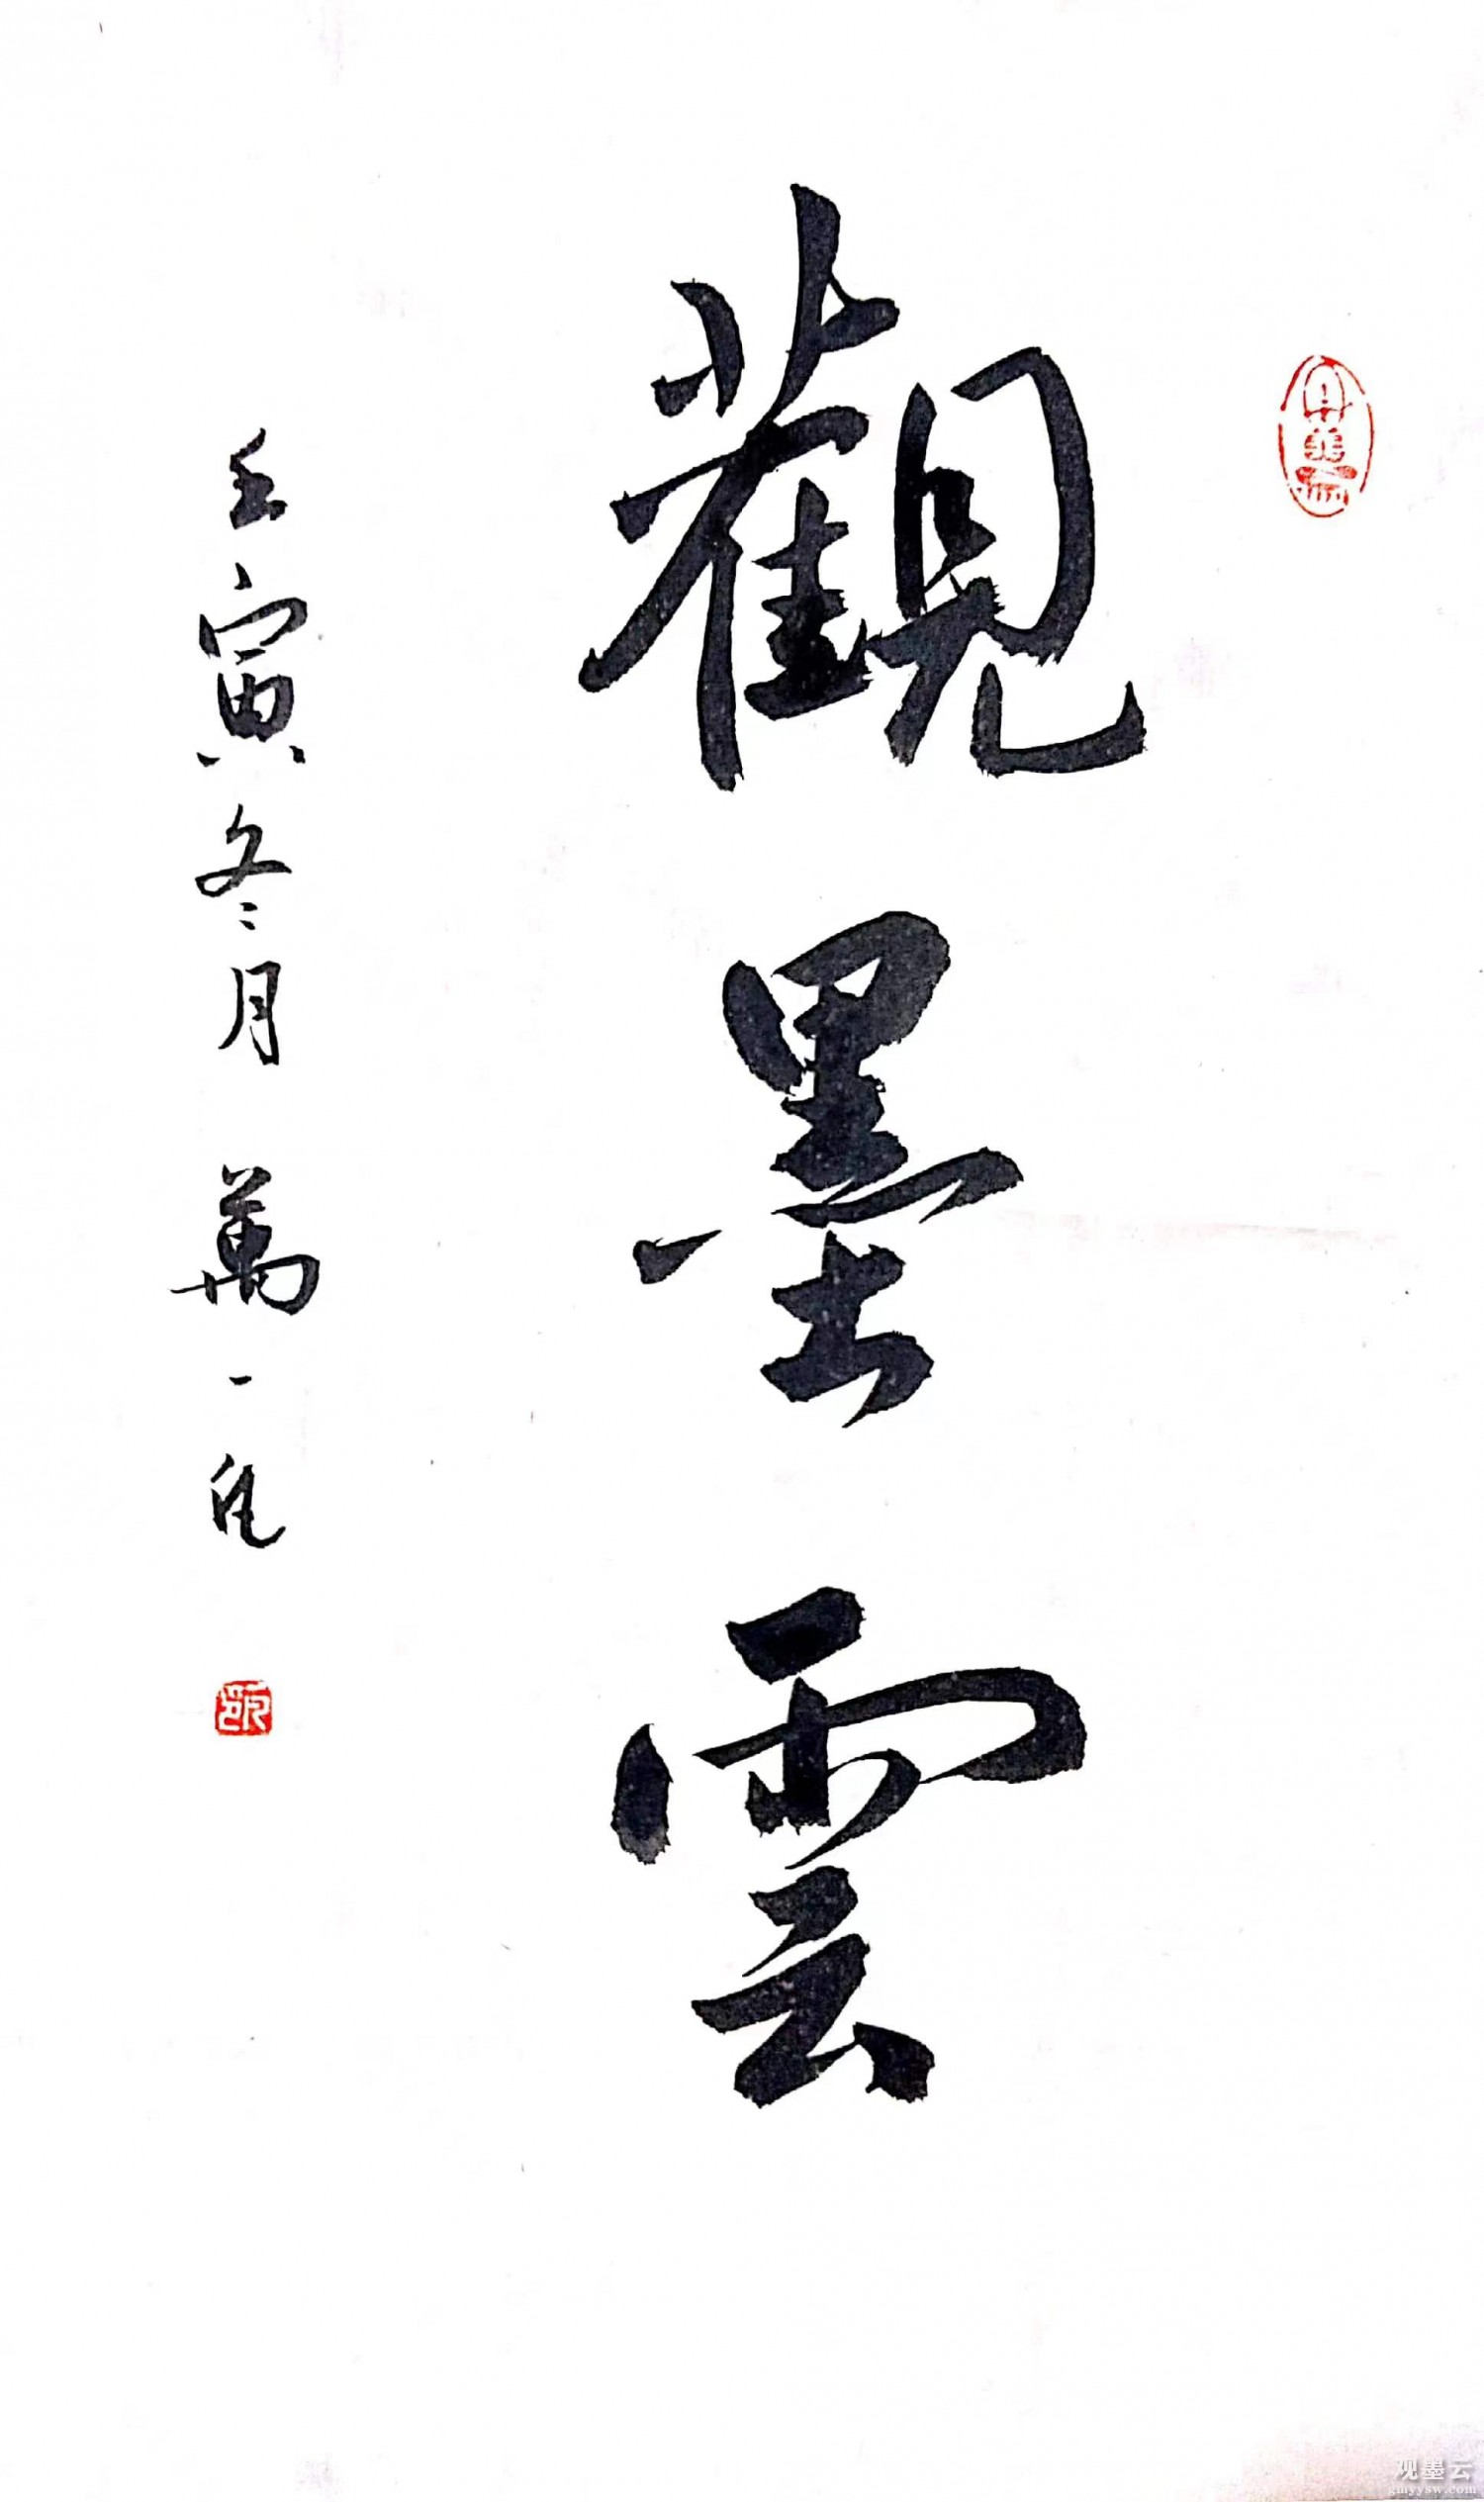 觀墨雲
壬寅冬月 萬一凡
观墨云
gmyysw.com